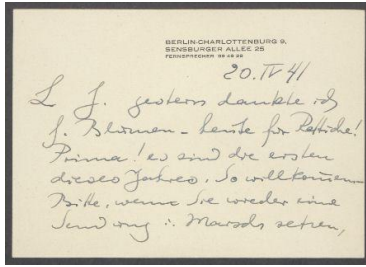 BERLIN-CHARLOTTENBURG 9,
SENSBURGER ALLEE 25
FERNSPRECHER
20.IV 41
L J. gestern dankte ich
f. Blumen - heute für Rettiche!
Prima! es sind die ersten
dieses Jahres. So willkommen
Bitte, wenn Sie wieder eine
Sendung i. Marsch setzen,